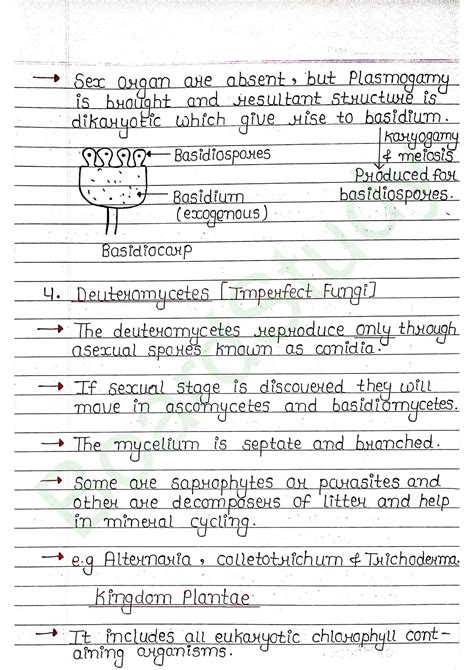 → Sex organ are absent, but Plasmogamy
is brought and resultant structure is
dikaryotic which give rise to basidium.
karyogamy
& meiosis
Produced four
basidiospores.
Basidiospores
Basidium
(exogenous)
Basidiocarp
4. Deuteromycetes [Imperfect Fungi]
→ The deuteromycetes reproduce only through
asexual spores known as conidia.
→ If sexual stage is discovered they will
move in ascomycetes and basidiomycetes.
→ The mycelium is septate and branched.
→ Some are saprophytes or parasites and
other are decomposers of litter and help
in mineral cycling.
→ e.g Alternaria, colletotrichum & Trichoderma.
Kingdom Plantae
→ It includes all eukaryotic chlorophyll cont-
aining organisms.